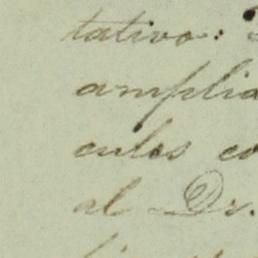 tativo:
amplia
culos co
al Dr.